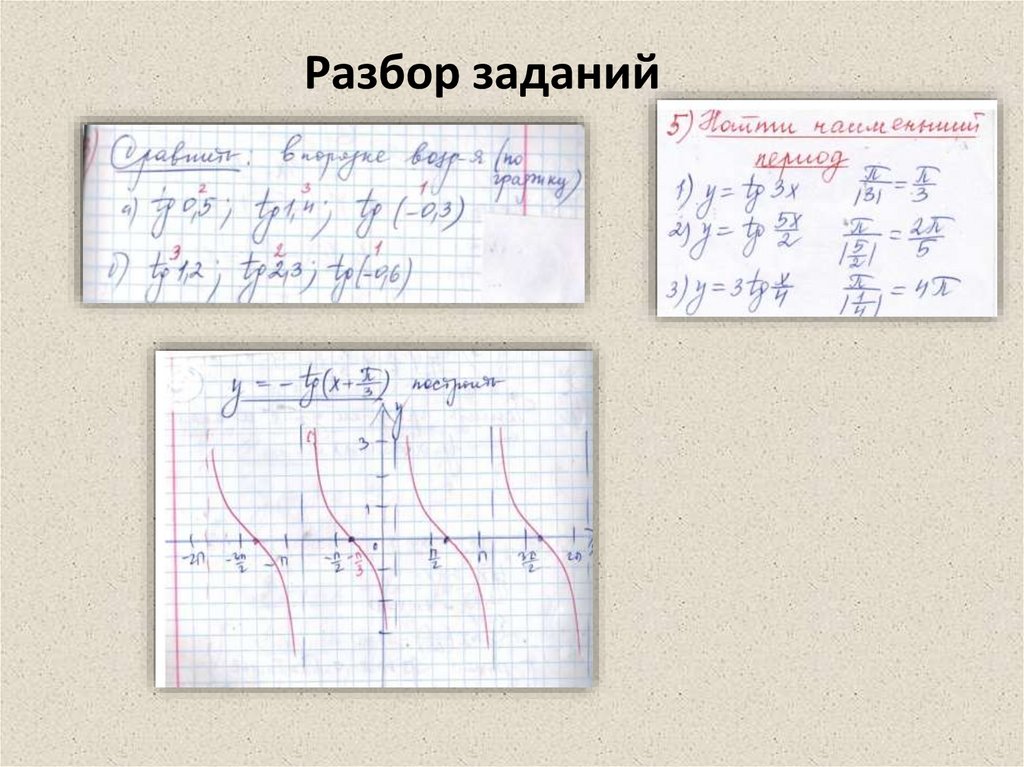 Разбор заданий
) Сравнить: в порядке возр-я (по графику)
2 3 1
а) tg 0,5; tg 1,4; tg (-0,3)
3 2 1
б) tg 1,2; tg 2,3; tg (-0,6)
5) Найти наименьший
период
1) y = tg 3x π/|3| = π/3
2) y = tg 5x/2 π/|5/2| = 2π/5
3) y = 3 tg x/4 π/|1/4| = 4π
y = - tg (x + π/3) построить
y
3
1
0
-2π -3π/2 -π -π/2 -π/3 π/2 π 3π/2 2π